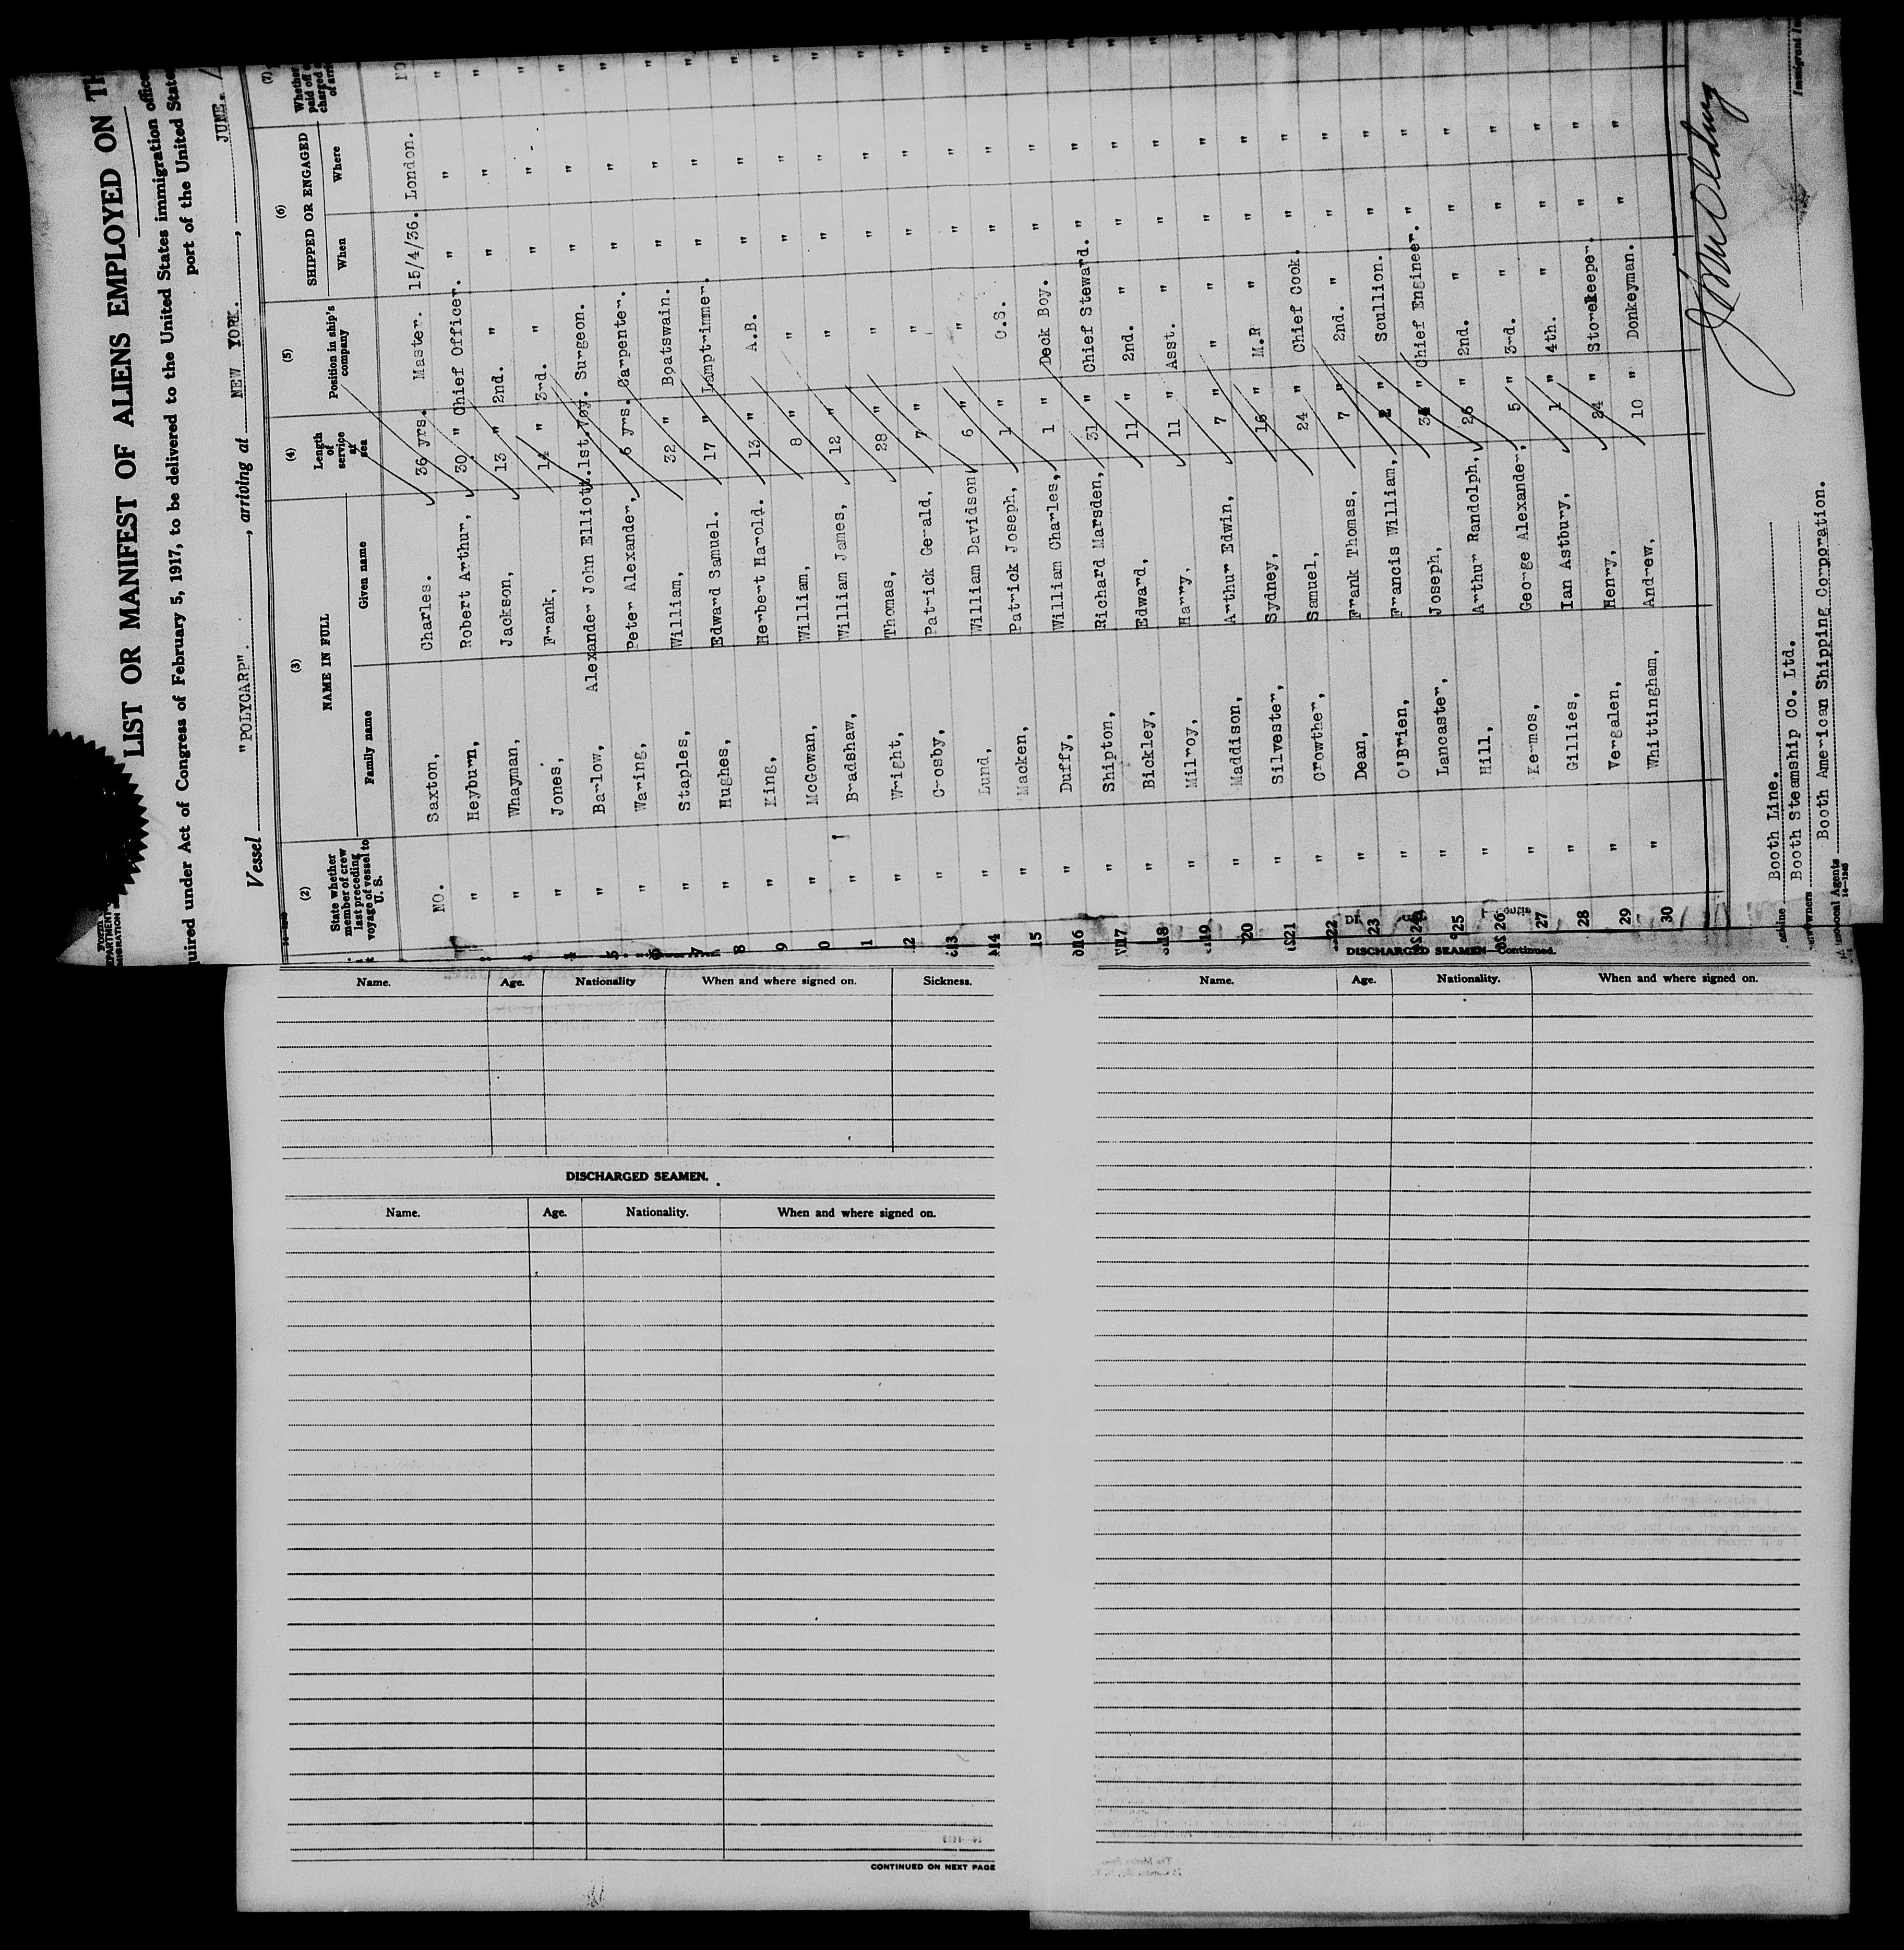 LIST OR MANIFEST OF ALIENS EMPLOYED ON
uired under Act of Congress of February 5, 1917, to be delivered to the United States immigration
port of the United
Vessel "POLYCARP". , arriving at NEW YORK. , JUNE.
(2) (3) (4) (5) (6) (7)
State whether member of crew last preceding voyage of vessel to U. S. NAME IN FULL Length of service at sea Position in ship's company SHIPPED OR ENGAGED Whether
Family name Given name When Where
NO. Saxton, Charles. 36 yrs. Master. 15/4/36. London. NO
" Heyburn, Robert Arthur, 30 " Chief Officer. " " "
" Whayman, Jackson, 13 " 2nd. " " " "
" Jones, Frank, 14 " 3rd. " " " "
" Barlow, Alexander John Elliott. 1st.Voy. Surgeon. " " "
" Waring, Peter Alexander, 6 yrs. Carpenter. " " "
" Staples, William, 32 " Boatswain. " " "
7 " Hughes, Edward Samuel. 17 " Lamptrimmer. " " "
8 " King, Herbert Harold. 13 " A.B. " " "
9 " McGowan, William, 8 " " " " "
0 " Bradshaw, William James, 12 " " " " "
1 " Wright, Thomas, 28 " " " " "
12 " Crosby, Patrick Gerald, 7 " " " " "
13 " Lund, William Davidson, 6 " " " " "
14 " Macken, Patrick Joseph, 1 " O.S. " " "
15 " Duffy, William Charles, 1 " Deck Boy. " " "
16 " Shipton, Richard Marsden, 31 " Chief Steward. " " "
17 " Bickley, Edward, 11 " 2nd. " " " "
18 " Milroy, Harry, 11 " Asst. " " " "
19 " Maddison, Arthur Edwin, 7 " " " " " "
20 " Silvester, Sydney, 16 " M.R " " " "
21 " Crowther, Samuel, 24 " Chief Cook. " " "
22 " Dean, Frank Thomas, 7 " 2nd. " " " "
23 " O'Brien, Francis William, " Scullion. " " "
24 " Lancaster, Joseph, " Chief Engineer. " " "
25 " Hill, Arthur Randolph, 26 " 2nd. " " " "
26 " Kermos, George Alexander, 5 " 3rd. " " " "
27 " Gillies, Ian Astbury, 1 " 4th. " " " "
28 " Vergalen, Henry, 24 " Storekeeper. " " "
29 " Whittingham, Andrew, 10 " Donkeyman. " " "
30
Line Booth Line.
Owners Booth Steamship Co. Ltd.
Local Agents Booth American Shipping Corporation.
Name. Age. Nationality When and where signed on. Sickness.
DISCHARGED SEAMEN.
Name. Age. Nationality. When and where signed on.
CONTINUED ON NEXT PAGE
DISCHARGED SEAMEN—Continued.
Name. Age. Nationality. When and where signed on.